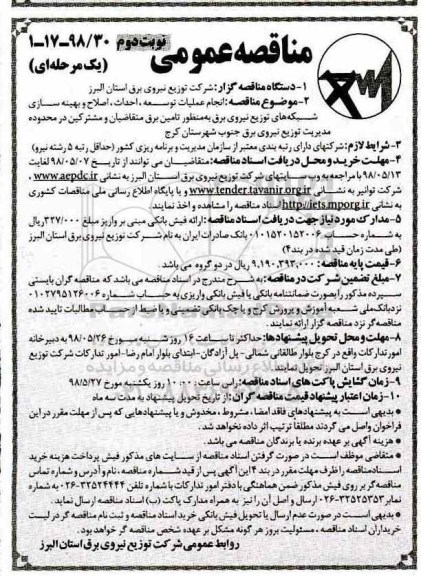 مناقصه عمومی
نوبت دوم
۹۸/۳۰-۱۷-۱
(یک مرحله‌ای)
۱-دستگاه مناقصه گزار: شرکت توزیع نیروی برق استان البرز
۲-موضوع مناقصه: انجام عملیات توسعه، احداث، اصلاح و بهینه سازی
شبکه‌های توزیع نیروی برق به‌منظور تامین برق متقاضیان و مشترکین در محدوده
مدیریت توزیع نیروی برق جنوب شهرستان کرج
۳- شرایط لازم: شرکتهای دارای رتبه بندی معتبر از سازمان مدیریت و برنامه ریزی کشور (حداقل رتبه ۵ رشته نیرو)
۴-مهلت خرید و محل دریافت اسناد مناقصه: متقاضیان می توانند از تاریخ ۹۸/۰۵/۰۷ لغایت
۹۸/۰۵/۱۳ با مراجعه به وب سایتهای شرکت توزیع نیروی برق استان البرز به نشانی www.aepdc.ir ،
شرکت توانیر به نشانی www.tender.tavanir.org.ir و یا پایگاه اطلاع رسانی ملی مناقصات کشوری
به نشانی http://iets.mporg.ir اسناد مناقصه را مشاهده و اخذ نمایند.
۵-مدارک مورد نیاز جهت دریافت اسناد مناقصه: ارائه فیش بانکی مبنی بر واریز مبلغ ۳۲۷/۰۰۰ ریال
به شماره حساب ۰۱۰۱۵۲۰۱۵۲۰۰۶ بانک صادرات ایران به نام شرکت توزیع نیروی برق استان البرز
(طی مدت زمان قید شده در بند۴)
۶-قیمت پایه مناقصه: ۹.۱۹۰.۳۹۳.۰۰۰ ریال در دو گروه می باشد.
۷-مبلغ تضمین شرکت در مناقصه: به شرح مندرج در اسناد مناقصه می باشد که مناقصه گران بایستی
سپرده مذکور را بصورت ضمانتنامه بانکی یا فیش بانکی واریزی به حساب شماره ۰۱۰۲۷۹۵۱۲۶۰۰۶
نزد بانک‌ملی شعبه آموزش و پرورش کرج و یا چک بانکی تضمینی و یا ضبط از حساب مطالبات تایید شده
مناقصه‌گر نزد مناقصه گزار ارائه نمایند.
۸-مهلت و محل تحویل پیشنهادها: حداکثر تا ساعت ۱۶ روز شنبه مورخ ۹۸/۰۵/۲۶ به دبیرخانه
امور تدارکات واقع در کرج بلوار طالقانی شمالی- پل آزادگان-ابتدای بلوار امام رضا-امور تدارکات شرکت توزیع
نیروی برق استان البرز تحویل نمایند.
۹-زمان گشایش پاکت های اسناد مناقصه: راس ساعت ۱۰:۰۰ روز یکشنبه مورخ ۹۸/۵/۲۷
۱۰-زمان اعتبار پیشنهاد قیمت مناقصه گران: از تاریخ تحویل پیشنهاد به مدت سه ماه
• بدیهی است به پیشنهادهای فاقد امضا، مشروط، مخدوش و یا پیشنهادهایی که پس از مهلت مقرر در این
فراخوان واصل می گردند مطلقا ترتیب اثر داده نخواهد شد.
• هزینه آگهی بر عهده برنده یا برندگان مناقصه می باشد.
• متقاضی موظف است در صورت گرفتن اسناد مناقصه از سایت های مذکور فیش پرداخت هزینه خرید
اسناد مناقصه را ظرف مهلت مقرر در بند ۴ این آگهی پس از قید شماره مناقصه، نام و آدرس و شماره تماس
مناقصه گر بر روی فیش مذکور ضمن هماهنگی با دفتر امور تدارکات با شماره تلفن ۳۲۵۲۴۴۴۴-۰۲۶ به شماره
نمابر ۳۲۵۲۵۳۵۳-۰۲۶ ارسال و اصل آن را نیز به همراه مدارک پاکت (ب) اسناد مناقصه ارسال نماید.
• بدیهی است در صورت عدم ارسال یا تحویل فیش بانکی خرید اسناد مناقصه و ثبت نام مناقصه گر در لیست
خریداران اسناد مناقصه، مسئولیت بروز هر گونه مشکل بر عهده شخص مناقصه گر خواهد بود.
روابط عمومی شرکت توزیع نیروی برق استان البرز